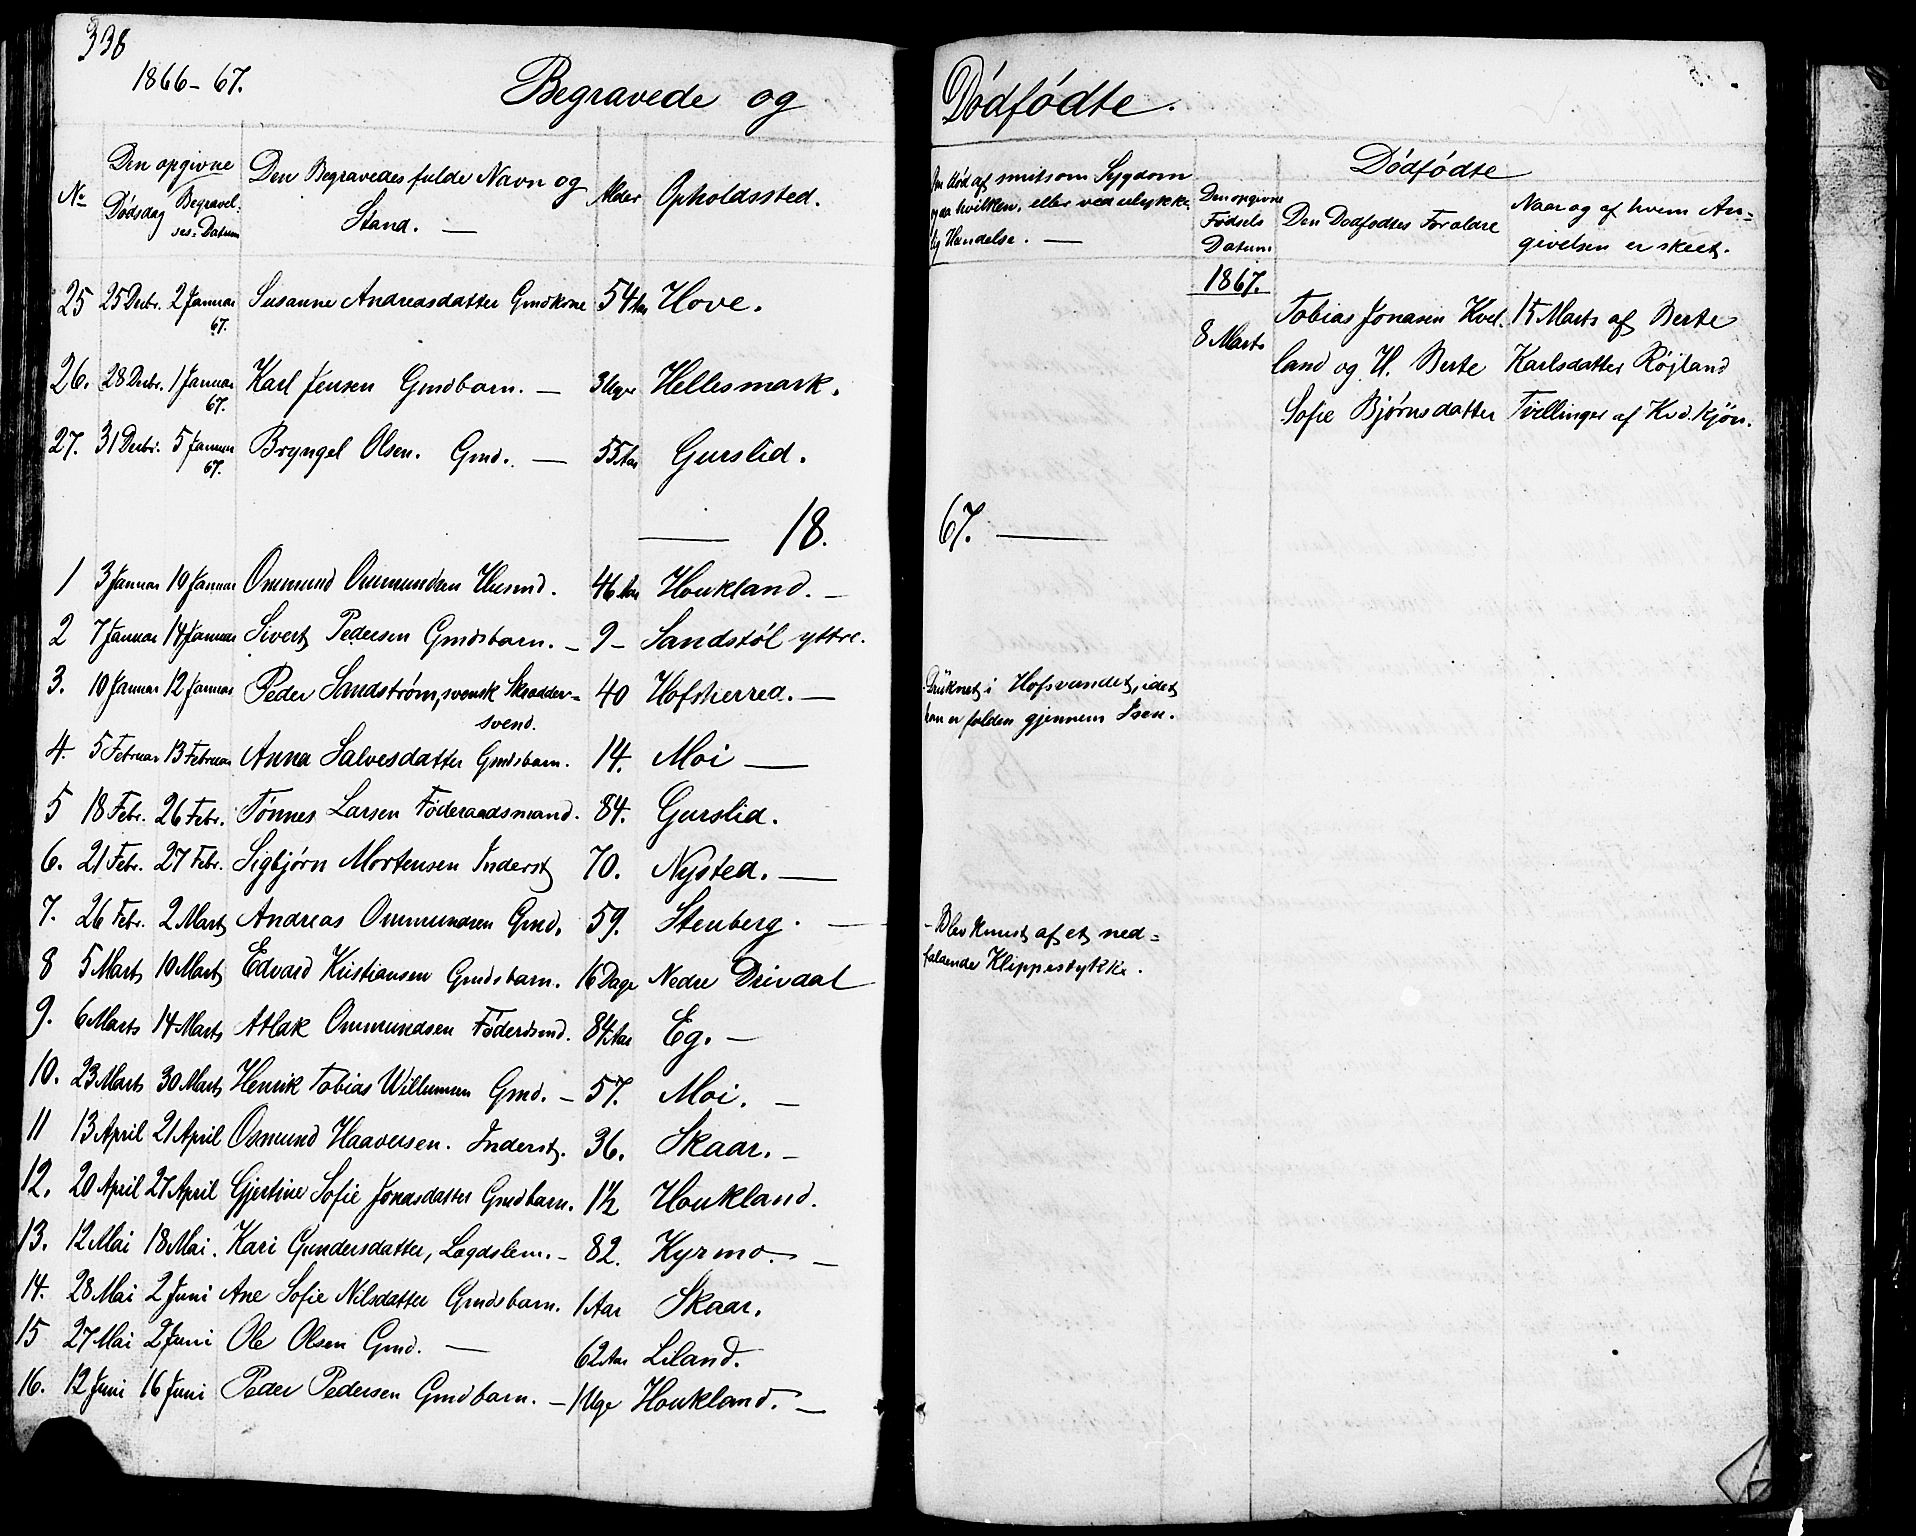 338
1866-67.
Begravede og Dødfødte.
No
Den opgivne
Dødsdag
Begravel-
ses-Datum
Den Begravedes fulde Navn og
Stand. —
Alder
Opholdssted.
Om død af smitsom Sygdom
og da hvilken, eller ved ulykke-
lig Hændelse. —
Dødfødte
Den opgivne
Fødsels
Datum
Den Dødfødtes Forældre
Naar og af hvem An-
givelsen er skeet.
25 25 Decbr. 2 Januar 67. Susanne Andreasdatter Gmdkone 54 Aar Hove.
26. 28 Decbr. 1 Januar 67. Karl Jensen Gmdbarn. — 3 Uger Hellesmark.
27. 31 Decbr. 5 Januar 67. Bryngel Olsen. Gmd. — 55 Aar Gurslid.
1867.
8 Marts Tobias Jonasen Kvel- 15 Marts af Berte
land og H. Berte Karlsdatter Røjland
Sofie Bjørnsdatter Tvillinger af Kvd. kjøn.
— 18 67. —
1 3 Januar 19 Januar Ommund Ommundsen Husmd. 46 Aar Houkland. —
2 7 Januar 14 Januar Sivert Pedersen Gmdsbarn. — 9 - Sandstøl yttre.
3. 10 Januar 12 Januar Peder Sandstrøm, svensk Skrædder-
svend. 40 Hofsherred. — Druknet i Hofsvandet, idet
han er falden gjennem Isen.
4. 5 Februar 13 Februar Anna Salvesdatter Gmdsbarn. 14. Moi —
5 18 Febr. 26 Febr. Tønnes Larsen Føderaadsmand. 84. Gurslid.
6. 21 Febr. 27 Febr. Sigbjørn Mortensen Inderst 70. Nysted. —
7. 26 Febr. 2 Marts Andreas Ommundsen Gmd. 59. Stenberg. — - Blev knust af et ned-
faldende Klippestykke.
8 5 Marts 10 Marts Edvard Kristiansen Gmdsbarn. 16 Dage Nedre Drivdal
9. 6 Marts 14 Marts Atlak Ommundsen Føderdsmd. 84 Aar Eg. —
10. 23 Marts 30 Marts Henrik Tobias Willumsen Gmd. — 57. Moi. —
11 13 April 21 April Osmund Haaversen. Inderst. 36. Skaar. —
12. 20 April 27 April Gjertine Sofie Jonasdatter Gmdbarn. 1½ Houkland.
13. 12 Mai 18 Mai. Kari Gundersdatter, Lægdslem. — 82. Kyrmo. —
14. 28 Mai 2 Juni Ane Sofie Nilsdatter Gmdsbarn. 1 Aar Skaar.
15 27 Mai 2 Juni Ole Olsen Gmd. — 62 Aar Liland.
16. 12 Juni 16 Juni Peder Pedersen Gmdbarn. — 1 Uge Houkland. —